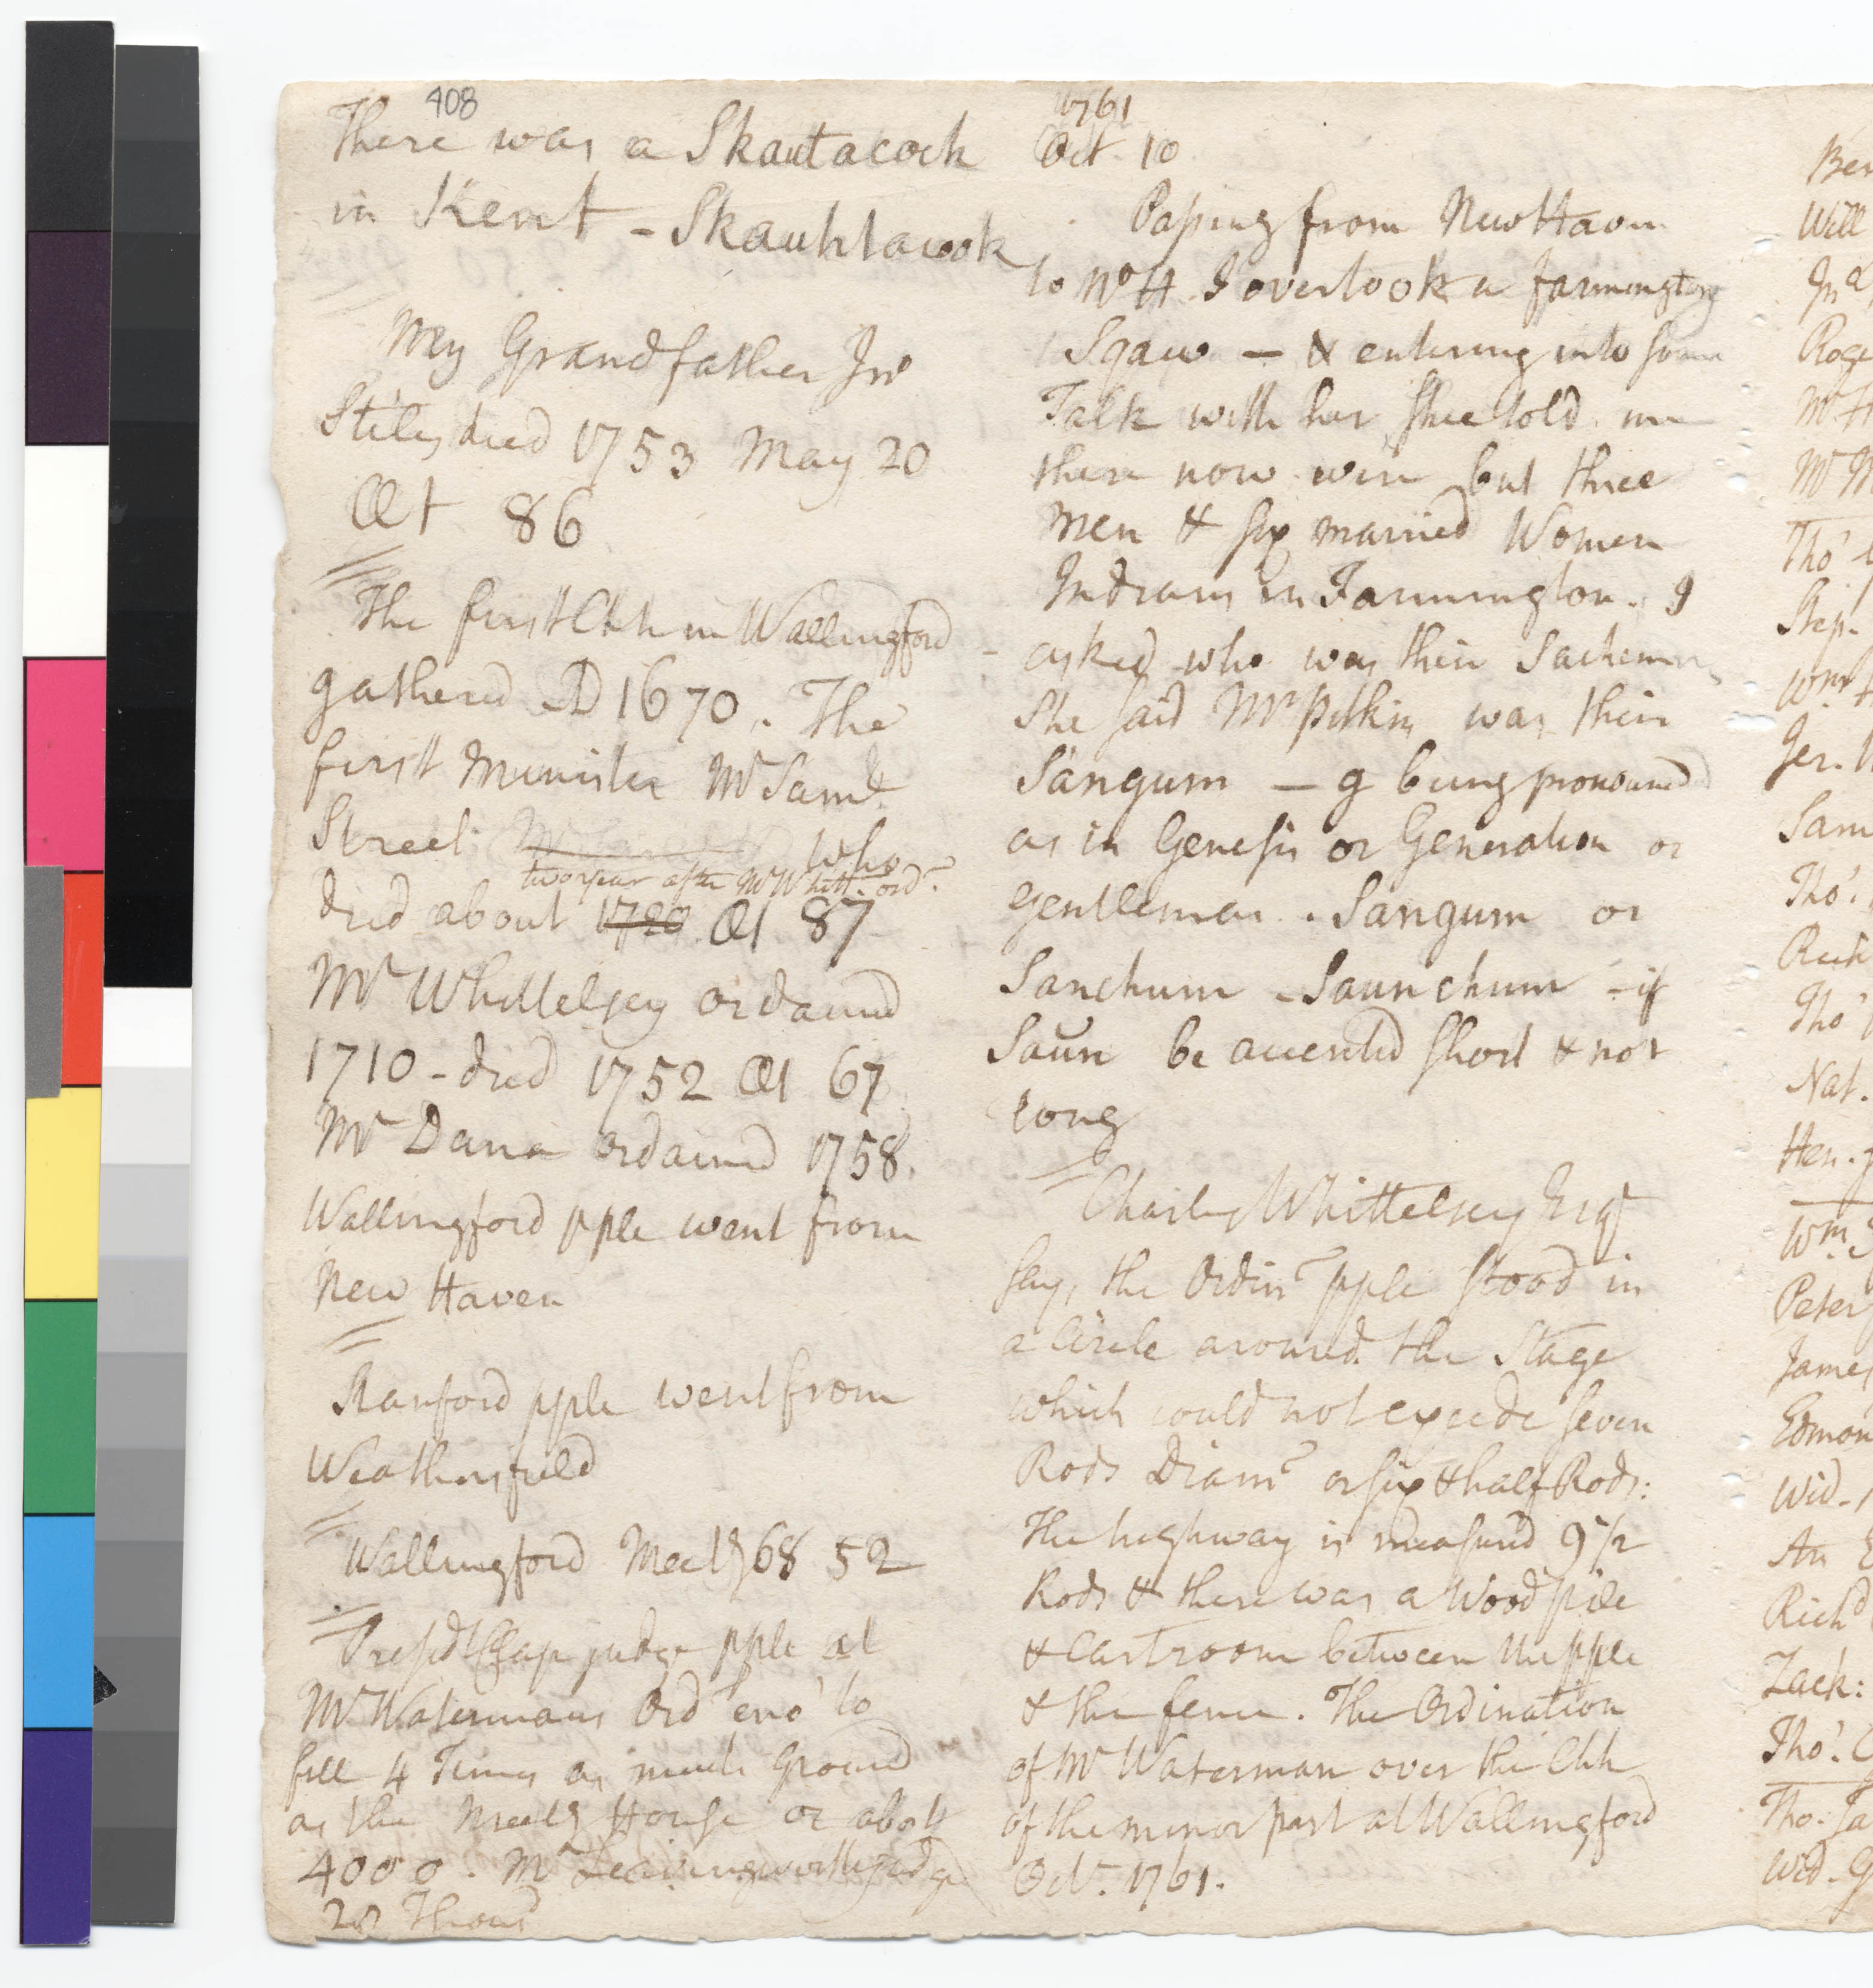 408
There was a Skautacock
in Kent - Skauhtacook
My Grandfather Jno
Stiles died 1753 May 20
Æt 86
The first Chh in Wallingford
gathered AD 1670. The
first Minister Mr Saml.
Street. who
two year after Mr Whitt. ordn.
died about 1720 Æt 87
Mr Whittelsey ordained
1710 - died 1752 Æt 67
Mr Dana ordained 1758.
Wallingford pple went from
New Haven
Stanford pple went from
Weathersfield
Wallingford Meetg 68 52
Presidt Clap judge pple at
Mr Watermans Ordn eno' to
fill 4 Times as much Ground
as the Meetg House or abot
4000. Mr Leavingworth judge
20 Thous
1761
Oct. 10
Passing from New Haven
to No H. I overtook a Farmington
Sqaw — & entering into some
Talk with her, shee told me
there now were but three
Men & six married Women
Indians in Farmington. I
asked who was their Sachem
She said Mr Pitkin was their
Sangum — g being pronounced
as in Genesis or Generation or
Gentleman. Sangum or
Sanchum - Saunchum - if
Saun be accented short & not
long
Charles Whittelsey Esqr
says, the Ordinn pple stood in
a Circle around the Stage
which could not exceede seven
Rods Diamr or six & half Rods:
The highway is measured 9 1/2
Rods & there was a Wood pile
& Cartroom between the pple
& the fence. The Ordination
of Mr Waterman over the Chh
of the minor part at Wallingford
Oct. 1761.
Will
Jn
Mr H
Mr
Tho'
Step.
Wm
Jer.
Sam
Tho'.
Tho'
Nat.
Hen.
Wm.
Peter
James
Edmon
Wid.
An
Richd
Zack:
Tho'. C
Tho. Ja
Wid. G